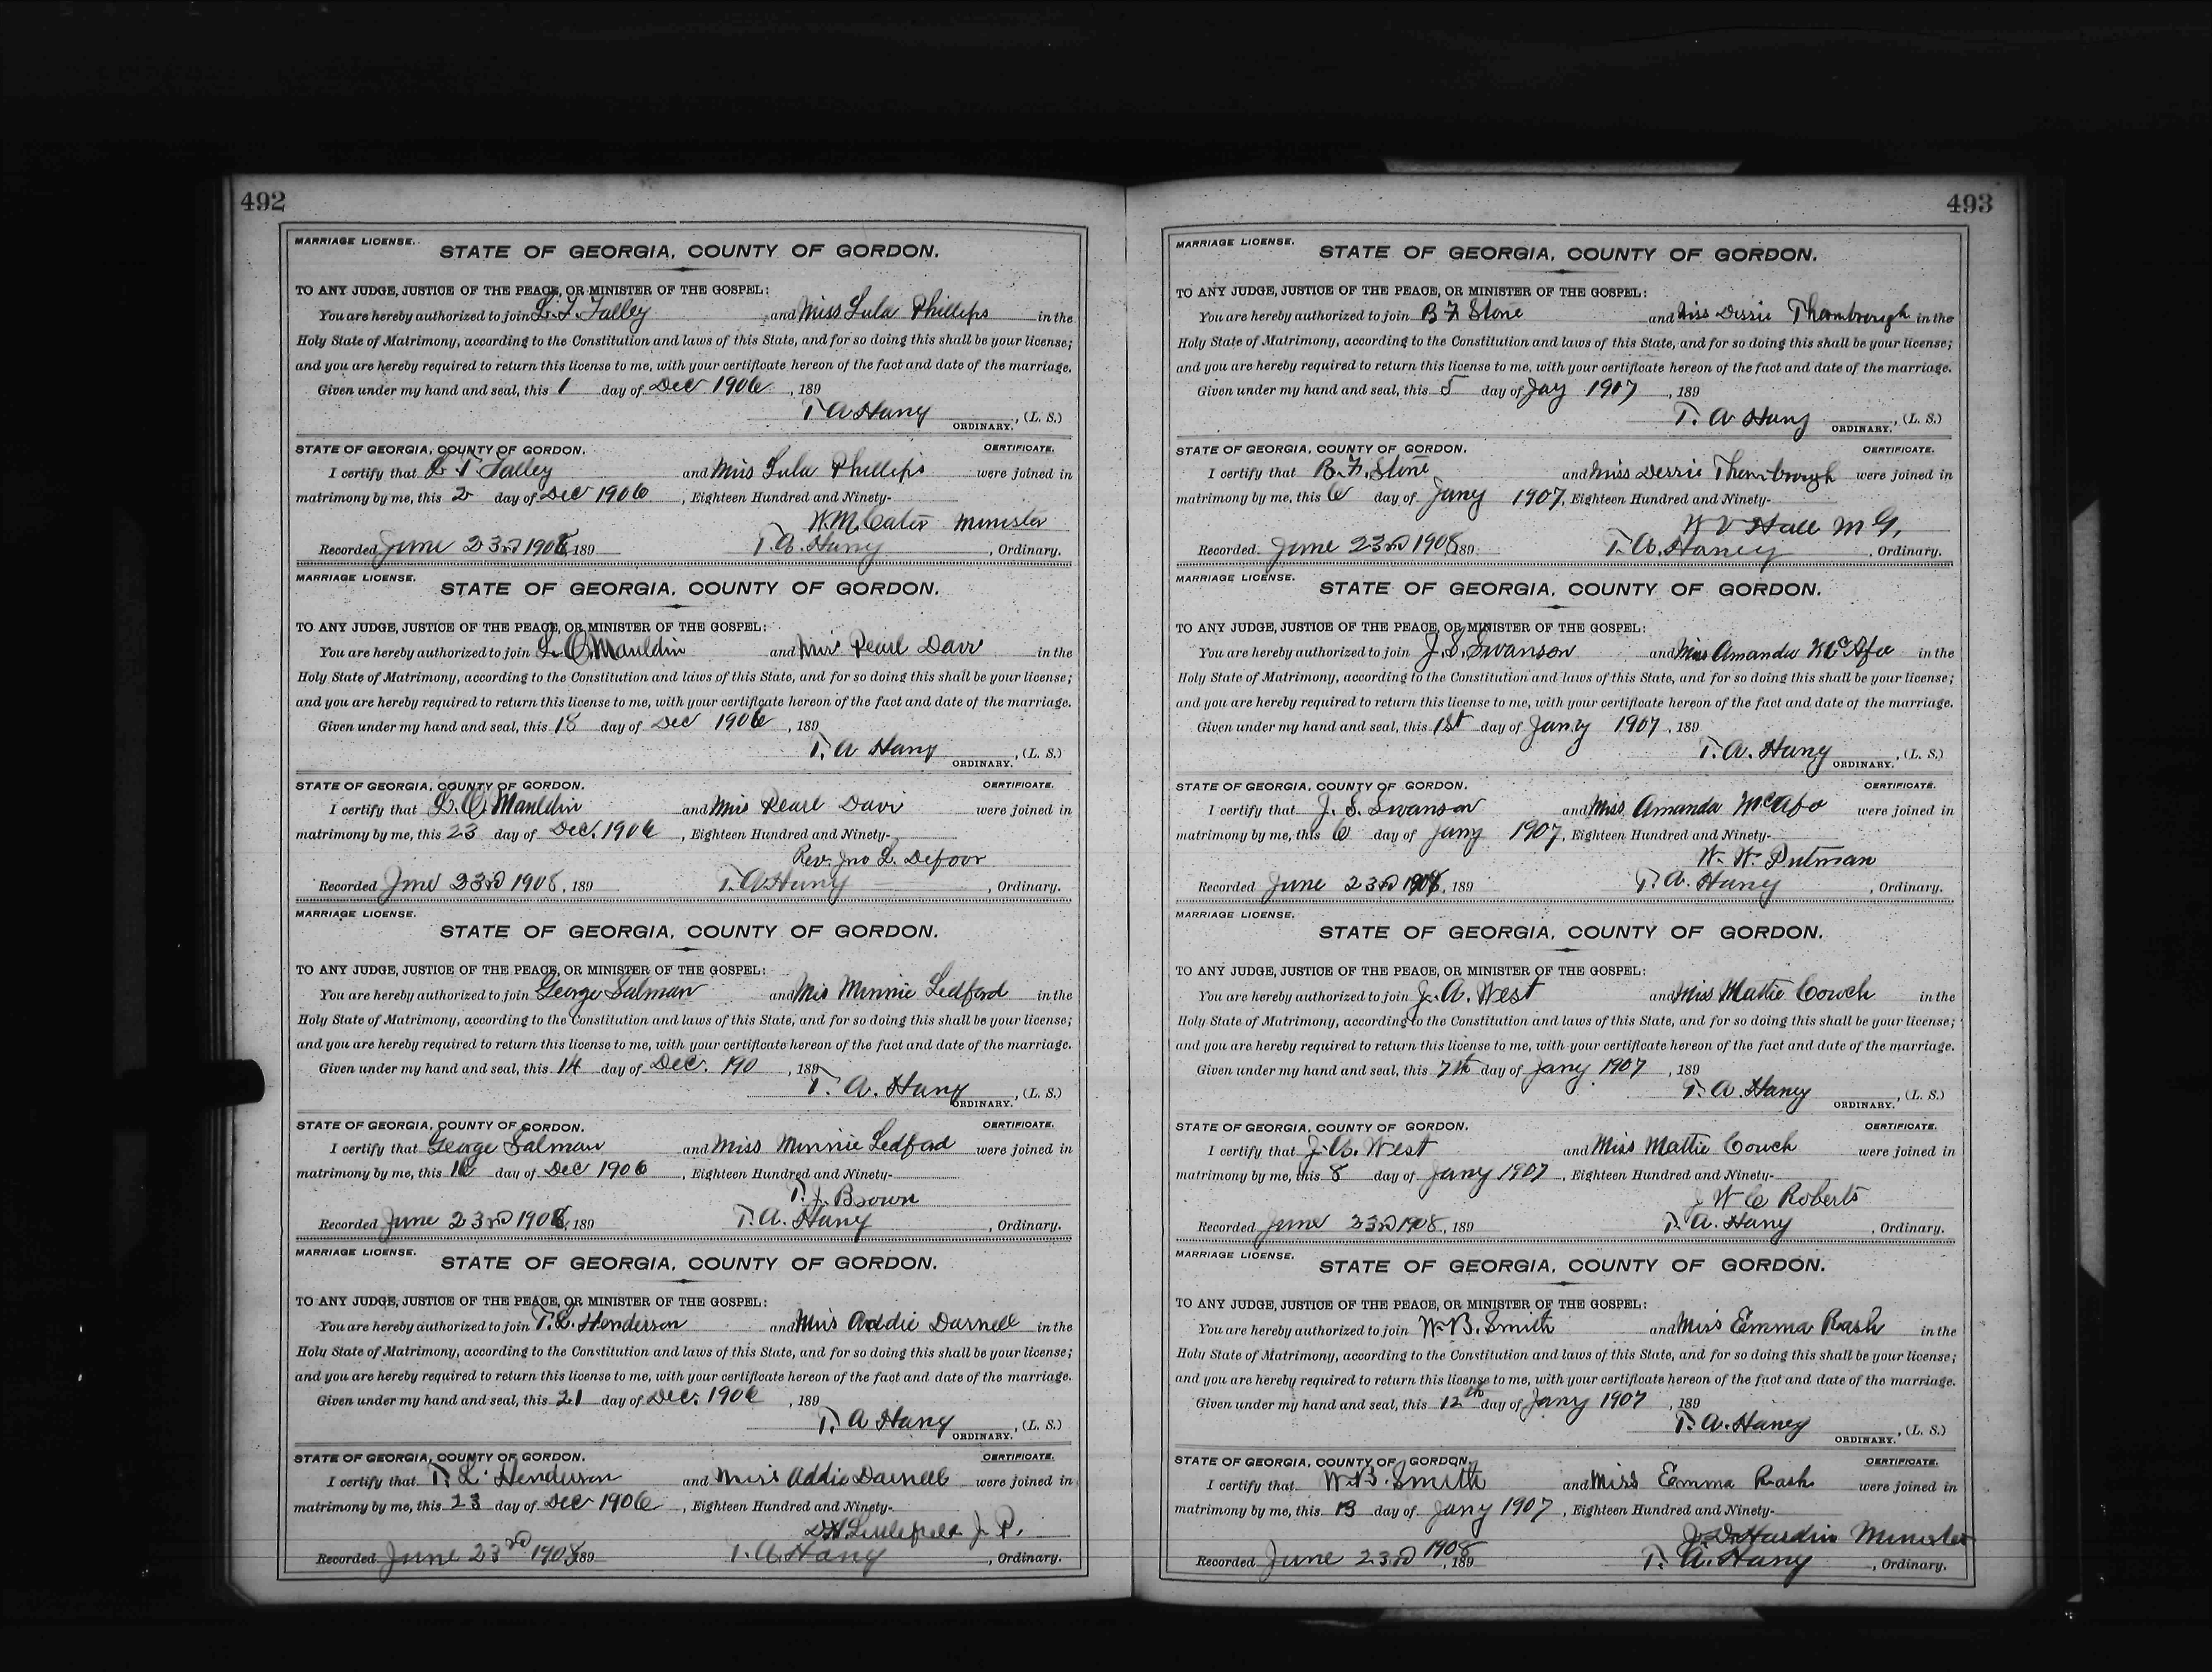 492
MARRIAGE LICENSE.
STATE OF GEORGIA, COUNTY OF GORDON.
TO ANY JUDGE, JUSTICE OF THE PEACE, OR MINISTER OF THE GOSPEL:
You are hereby authorized to join L. T. Talley and Miss Lula Phillips in the
Holy State of Matrimony, according to the Constitution and laws of this State, and for so doing this shall be your license;
and you are hereby required to return this license to me, with your certificate hereon of the fact and date of the marriage.
Given under my hand and seal, this 1 day of Dec 1906, 189
T. A Haney, (L. S.)
ORDINARY.
STATE OF GEORGIA, COUNTY OF GORDON. CERTIFICATE.
I certify that L T Talley and Miss Lula Phillips were joined in
matrimony by me, this 2 day of Dec 1906, Eighteen Hundred and Ninety-
W. M. Cater Minister
Recorded June 23rd 1908, 189 T. A. Haney, Ordinary.
MARRIAGE LICENSE.
STATE OF GEORGIA, COUNTY OF GORDON.
TO ANY JUDGE, JUSTICE OF THE PEACE, OR MINISTER OF THE GOSPEL:
You are hereby authorized to join L. O. Mauldin and Miss Pearl Davi in the
Holy State of Matrimony, according to the Constitution and laws of this State, and for so doing this shall be your license;
and you are hereby required to return this license to me, with your certificate hereon of the fact and date of the marriage.
Given under my hand and seal, this 18 day of Dec 1906, 189
T. A Haney, (L. S.)
ORDINARY.
STATE OF GEORGIA, COUNTY OF GORDON. CERTIFICATE.
I certify that L. O. Mauldin and Miss Pearl Davi were joined in
matrimony by me, this 23 day of Dec. 1906, Eighteen Hundred and Ninety-
Rev. Jno L. Defoor
Recorded June 23rd 1908, 189 T. A Haney, Ordinary.
MARRIAGE LICENSE.
STATE OF GEORGIA, COUNTY OF GORDON.
TO ANY JUDGE, JUSTICE OF THE PEACE, OR MINISTER OF THE GOSPEL:
You are hereby authorized to join George Salman and Miss Minnie Ledford in the
Holy State of Matrimony, according to the Constitution and laws of this State, and for so doing this shall be your license;
and you are hereby required to return this license to me, with your certificate hereon of the fact and date of the marriage.
Given under my hand and seal, this 14 day of Dec. 190, 189
T. A. Haney, (L. S.)
ORDINARY.
STATE OF GEORGIA, COUNTY OF GORDON. CERTIFICATE.
I certify that George Salman and Miss Minnie Ledford were joined in
matrimony by me, this 16 day of Dec 1906, Eighteen Hundred and Ninety-
T. J. Brown
Recorded June 23rd 1908, 189 T. A. Haney, Ordinary.
MARRIAGE LICENSE.
STATE OF GEORGIA, COUNTY OF GORDON.
TO ANY JUDGE, JUSTICE OF THE PEACE, OR MINISTER OF THE GOSPEL:
You are hereby authorized to join T. L. Henderson and Miss Addie Darnell in the
Holy State of Matrimony, according to the Constitution and laws of this State, and for so doing this shall be your license;
and you are hereby required to return this license to me, with your certificate hereon of the fact and date of the marriage.
Given under my hand and seal, this 21 day of Dec. 1906, 189
T. A Haney, (L. S.)
ORDINARY.
STATE OF GEORGIA, COUNTY OF GORDON. CERTIFICATE.
I certify that T. L. Henderson and Miss Addie Darnell were joined in
matrimony by me, this 23 day of Dec 1906, Eighteen Hundred and Ninety-
D. H. Littlefield J. P.
Recorded June 23rd 1908, 189 T. A. Haney, Ordinary.
493
MARRIAGE LICENSE.
STATE OF GEORGIA, COUNTY OF GORDON.
TO ANY JUDGE, JUSTICE OF THE PEACE, OR MINISTER OF THE GOSPEL:
You are hereby authorized to join B F Stone and Miss Dessie Thornbrough in the
Holy State of Matrimony, according to the Constitution and laws of this State, and for so doing this shall be your license;
and you are hereby required to return this license to me, with your certificate hereon of the fact and date of the marriage.
Given under my hand and seal, this 5 day of Jay 1907, 189
T. A Haney, (L. S.)
ORDINARY.
STATE OF GEORGIA, COUNTY OF GORDON. CERTIFICATE.
I certify that B. F. Stone and Miss Dessie Thornbrough were joined in
matrimony by me, this 6 day of Jany 1907, Eighteen Hundred and Ninety-
W V Hall M G,
Recorded. June 23rd 1908, 189 T. A. Haney, Ordinary.
MARRIAGE LICENSE.
STATE OF GEORGIA, COUNTY OF GORDON.
TO ANY JUDGE, JUSTICE OF THE PEACE, OR MINISTER OF THE GOSPEL:
You are hereby authorized to join J. S. Swanson and Miss Amanda McAfo in the
Holy State of Matrimony, according to the Constitution and laws of this State, and for so doing this shall be your license;
and you are hereby required to return this license to me, with your certificate hereon of the fact and date of the marriage.
Given under my hand and seal, this 1st day of Jany 1907, 189
T. A. Haney, (L. S.)
ORDINARY.
STATE OF GEORGIA, COUNTY OF GORDON. CERTIFICATE.
I certify that J. S. Swanson and Miss Amanda McAfo were joined in
matrimony by me, this 6 day of Jany 1907, Eighteen Hundred and Ninety-
W. W. Putman
Recorded June 23rd 1908, 189 T. A. Haney, Ordinary.
MARRIAGE LICENSE.
STATE OF GEORGIA, COUNTY OF GORDON.
TO ANY JUDGE, JUSTICE OF THE PEACE, OR MINISTER OF THE GOSPEL:
You are hereby authorized to join J. A. West and Miss Mattie Couch in the
Holy State of Matrimony, according to the Constitution and laws of this State, and for so doing this shall be your license;
and you are hereby required to return this license to me, with your certificate hereon of the fact and date of the marriage.
Given under my hand and seal, this 7th day of Jany 1907, 189
T. A. Haney, (L. S.)
ORDINARY.
STATE OF GEORGIA, COUNTY OF GORDON. CERTIFICATE.
I certify that J. A. West and Miss Mattie Couch were joined in
matrimony by me, this 8 day of Jany 1907, Eighteen Hundred and Ninety-
J W C Roberts
Recorded June 23rd 1908, 189 T. A. Haney, Ordinary.
MARRIAGE LICENSE.
STATE OF GEORGIA, COUNTY OF GORDON.
TO ANY JUDGE, JUSTICE OF THE PEACE, OR MINISTER OF THE GOSPEL:
You are hereby authorized to join W. B. Smith and Miss Emma Rash in the
Holy State of Matrimony, according to the Constitution and laws of this State, and for so doing this shall be your license;
and you are hereby required to return this license to me, with your certificate hereon of the fact and date of the marriage.
Given under my hand and seal, this 12th day of Jany 1907, 189
T. A. Haney, (L. S.)
ORDINARY.
STATE OF GEORGIA, COUNTY OF GORDON. CERTIFICATE.
I certify that W. B. Smith and Miss Emma Rash were joined in
matrimony by me, this 13 day of Jany 1907, Eighteen Hundred and Ninety-
J. D. Hardin Minister
Recorded June 23rd 1908, 189 T. A. Haney, Ordinary.